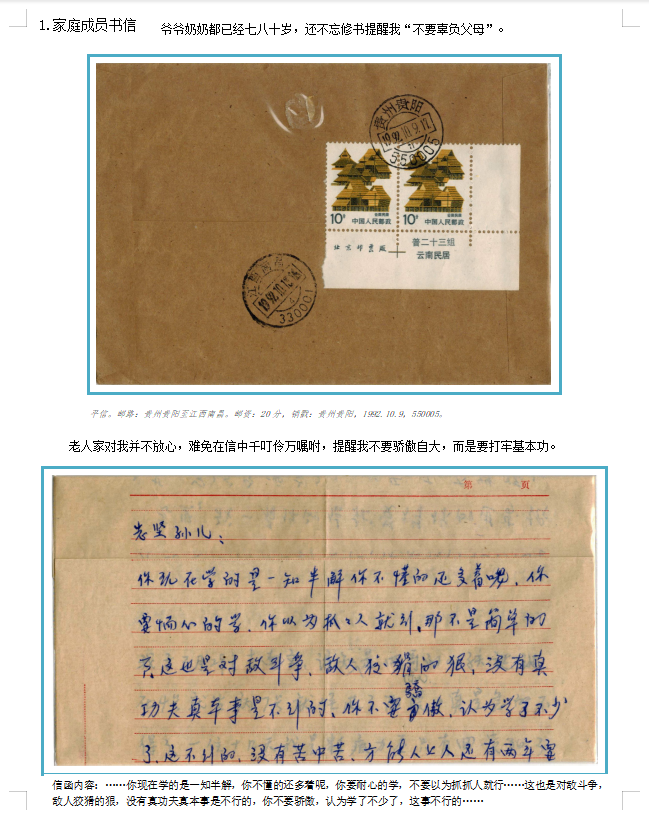 1.家庭成员书信 爷爷奶奶都已经七八十岁，还不忘修书提醒我“不要辜负父母”。
贵州贵阳
1992.10.9.17
550005
10分 中国人民邮政
10分 中国人民邮政
北京邮票厂
普二十三组
云南民居
330001
平信。邮路：贵州贵阳至江西南昌。邮资：20分，销戳：贵州贵阳，1992.10.9，550005。
老人家对我并不放心，难免在信中千叮伶万嘱咐，提醒我不要骄傲自大，而是要打牢基本功。
第 页
志坚孙儿：
你现在学的是一知半解你不懂的还多着呢，你
要耐心的学，你以为抓抓人就行，那不是简单的
了，这也是对敌斗争，敌人狡猾的狠，没有真
功夫真本事是不行的，你不要骄傲，认为学了不少
了，这不行的，没有苦中苦，方能人上人还有两年要
信函内容：……你现在学的是一知半解，你不懂的还多着呢，你要耐心的学，不要以为抓抓人就行……这也是对敌斗争，
敌人狡猾的狠，没有真功夫真本事是不行的，你不要骄傲，认为学了不少了，这事不行的……